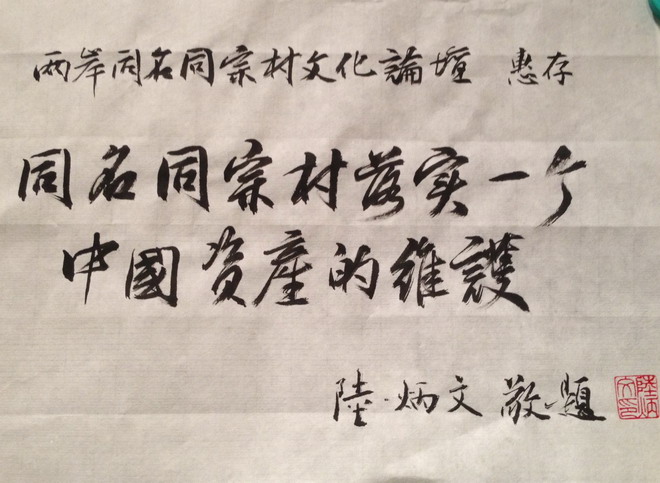 两岸同名同宗村文化論壇 惠存
同名同宗村落实一个
中國資產的維護
陸炳文 敬題
陸炳文印